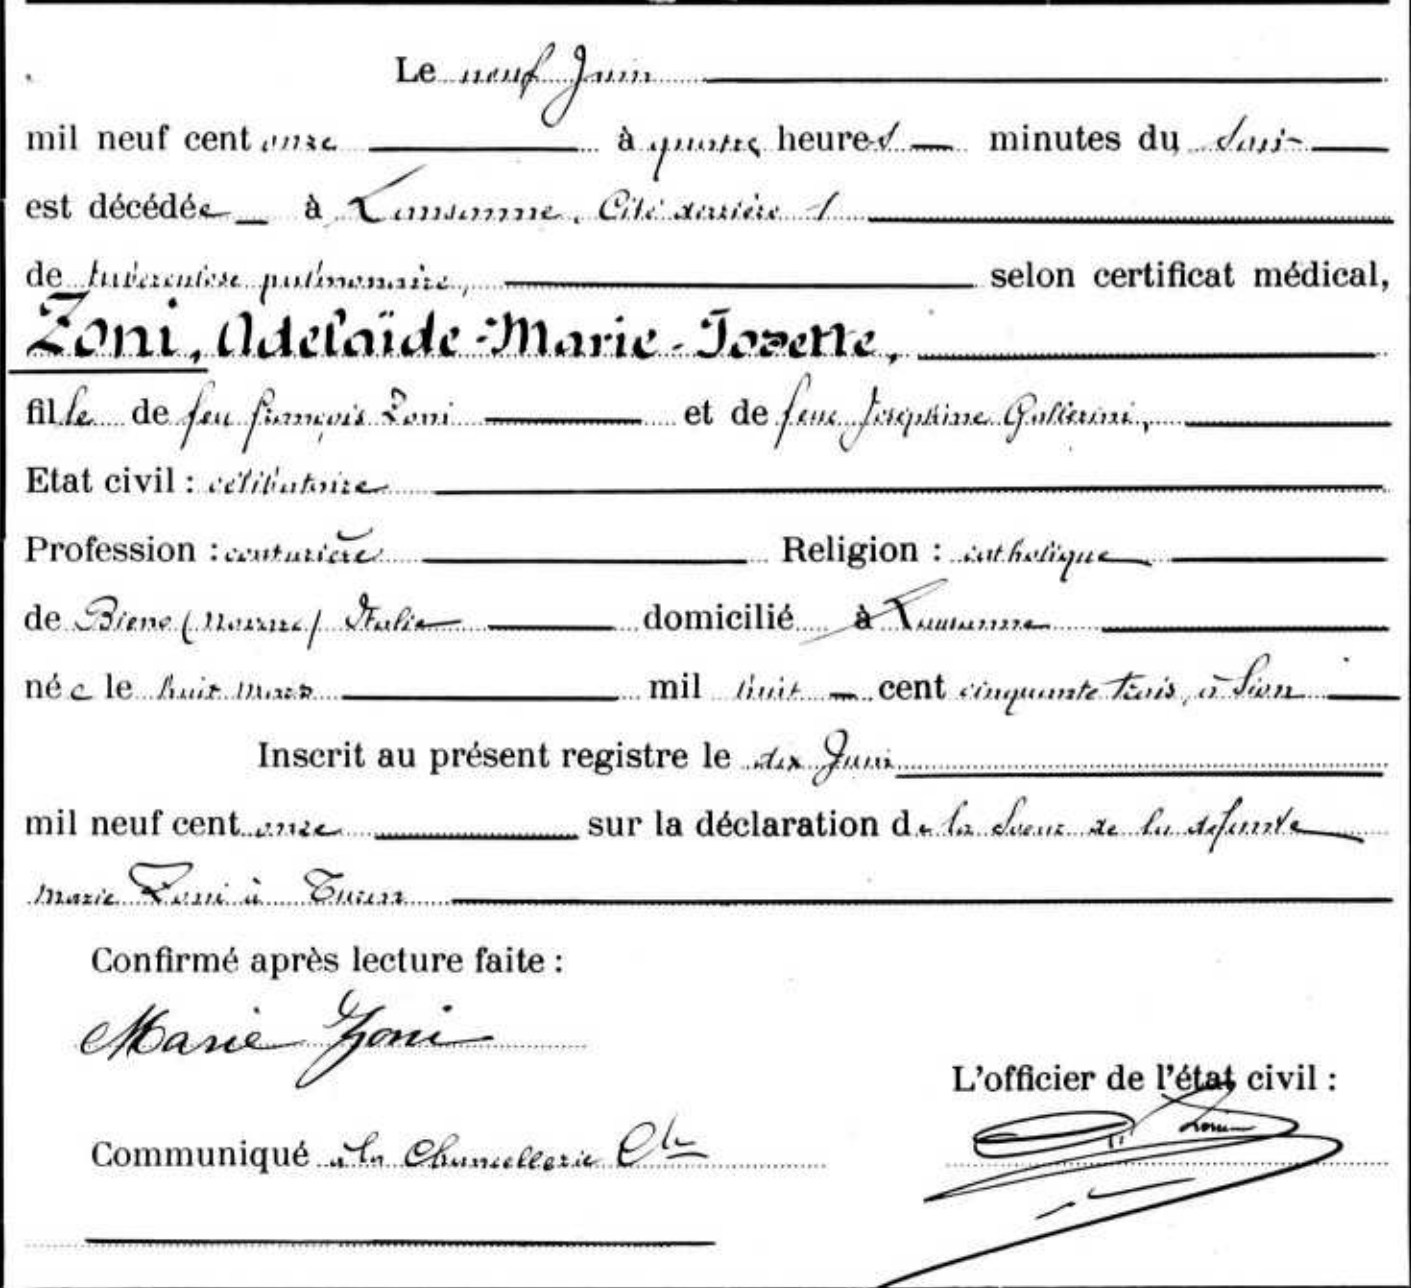 Le neuf Juin
mil neuf cent onze à quatre heures — minutes du soir
est décédée à Lausanne, Cité derrière 1
de tuberculose pulmonaire, selon certificat médical,
Zoni, Adelaïde-Marie-Jozette,
fille de feu françois Zoni et de feue Joséphine Gallerini,
Etat civil : célibataire
Profession : couturière Religion : catholique
de Bieno (Novarre) Italie domicilié à Lausanne
née le huit mars mil huit — cent cinquante trois, à Sion
Inscrit au présent registre le dix Juin
mil neuf cent onze sur la déclaration de la soeur de la défunte
Marie Zoni à Turin
Confirmé après lecture faite :
Marie Zoni
L'officier de l'état civil :
Communiqué à la Chancellerie Cle